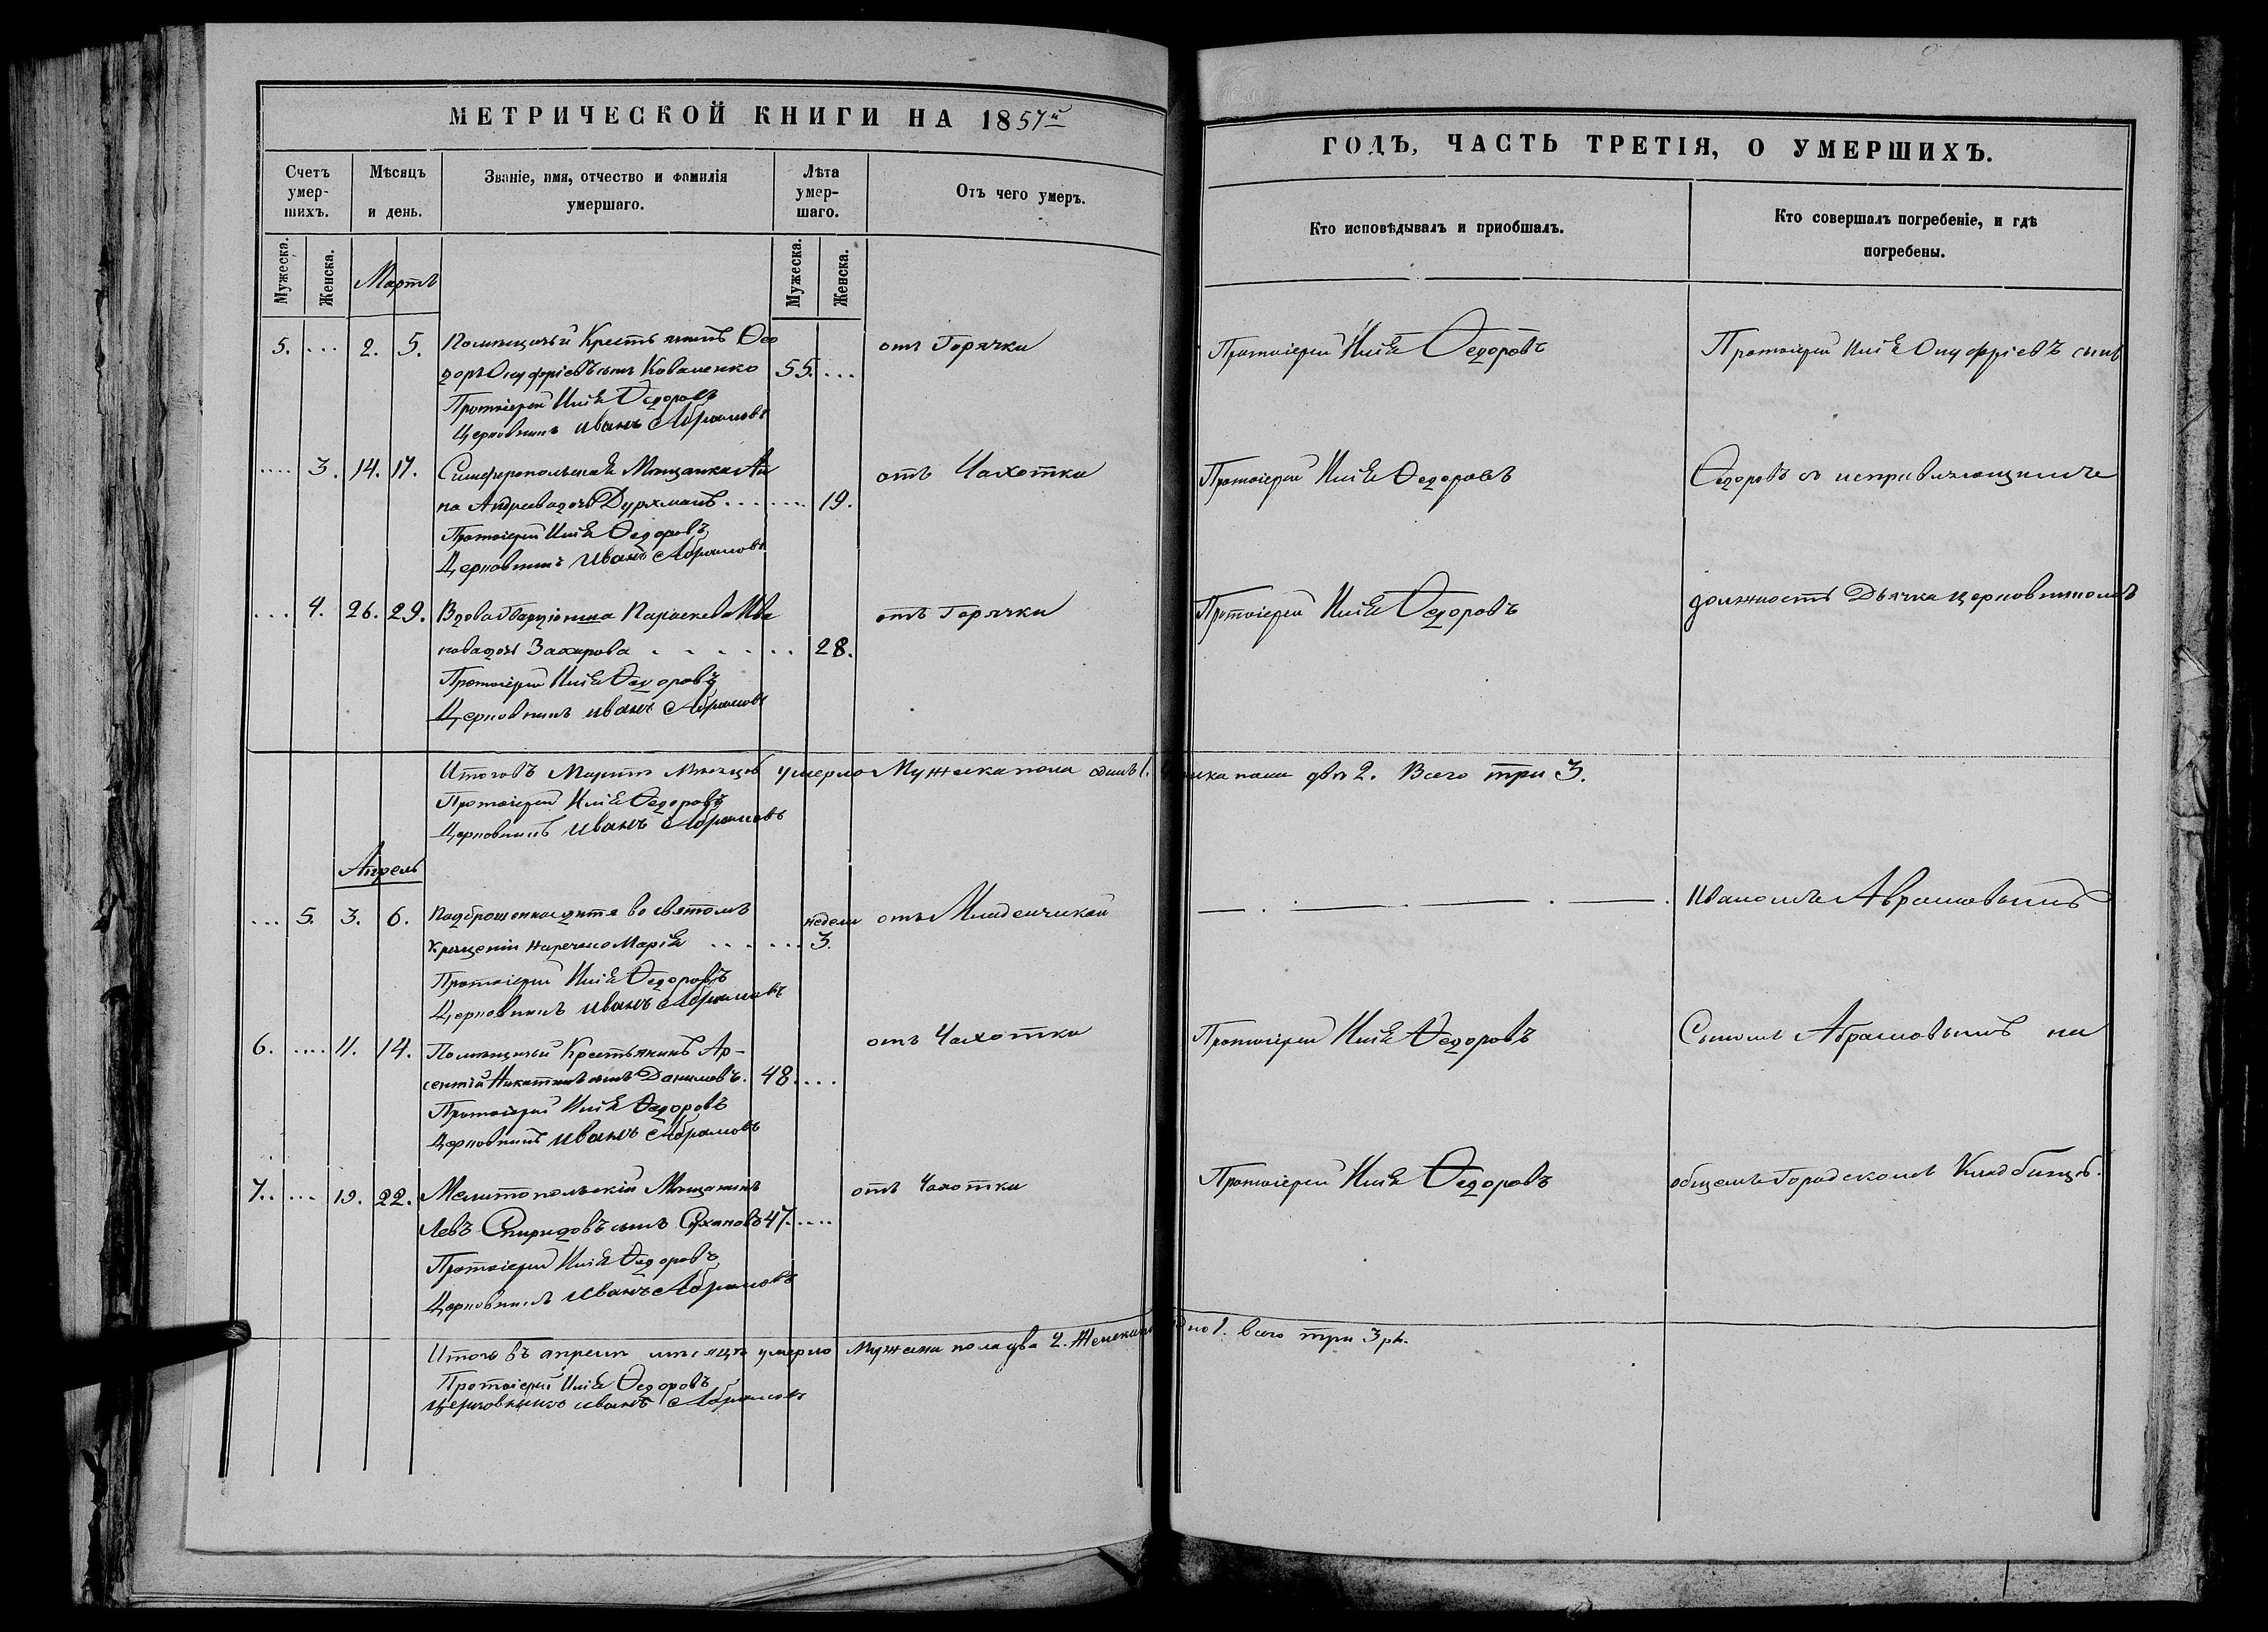 МЕТРИЧЕСКОЙ КНИГИ НА 1857й
Счетъ умер-шихъ.
Мѣсяцъ и день.
Званіе, имя, отчество и фамилія умершаго.
Лѣта умер-шаго.
Отъ чего умеръ.
Мужеска. Женска.
Мартъ
Мужеска. Женска.
5. ... 2. 5. Помѣщичій Крестьянинъ Ѳео
доръ Онуфріевъ сынъ Коваленко 55. ...
отъ Горячки
Протоіерей Илія Ѳедоровъ
Церковникъ Иванъ Абрамовъ
.... 3. 14. 17. Симферопольская Мѣщанка Ан
на Андреева дочь Дурхманъ. ... ... 19.
отъ Чахотки
Протоіерей Илія Ѳедоровъ
Церковникъ Иванъ Абрамовъ
... 4. 26. 29. Вдова Параскева Ива
нова дочь Захарова . . . . . . . 28.
отъ Горячки
Протоіерей Илія Ѳедоровъ
Церковникъ Иванъ Абрамовъ
Итого въ Мартѣ Мѣсяцѣ умерло Мужеска пола одинъ 1. пола двѣ 2. Всего три 3.
Протоіерей Илія Ѳедоровъ
Церковникъ Иванъ Абрамовъ
Апрель
... 5. 3. 6. Подброшенное дитя во святомъ
крещеніи наречено Марія . . . . . . недели 3.
отъ Младенческой
Протоіерей Илія Ѳедоровъ
Церковникъ Иванъ Абрамовъ
6. .... 11. 14. Помѣщичій Крестьянинъ Ар-
сентій Никитинъ сынъ Даниловъ. 48. ...
отъ Чахотки
Протоіерей Илія Ѳедоровъ
Церковникъ Иванъ Абрамовъ
7. .... 19. 22. Мелитопольскій Мѣщанинъ
Левъ Спиридовъ сынъ Сухановъ 47. ....
отъ Чахотки
Протоіерей Илія Ѳедоровъ
Церковникъ Иванъ Абрамовъ
Итого въ апрелѣ мѣсяцѣ умерло Мужеска пола два 2. Женска одно 1. всего три 3
Протоіерей Илія Ѳедоровъ
Церковникъ Иванъ Абрамовъ
ГОДЪ, ЧАСТЬ ТРЕТІЯ, О УМЕРШИХЪ.
Кто исповѣдывалъ и приобщалъ.
Кто совершалъ погребеніе, и гдѣ
погребены.
Протоіерей Илія Ѳедоровъ
Протоіерей Илія Онуфріевъ сынъ
Протоіерей Илія Ѳедоровъ
Ѳедоровъ съ исправляющимъ
Протоіерей Илія Ѳедоровъ
должность Дьячка церковникомъ
Иваномъ Абрамовымъ
Протоіерей Илія Ѳедоровъ
Сыномъ Абрамовымъ на
Протоіерей Илія Ѳедоровъ
общемъ Городскомъ Кладбищѣ.